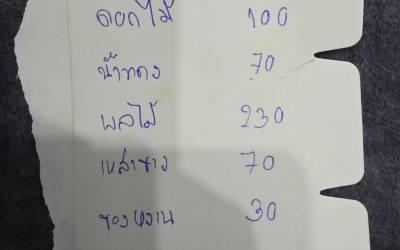 ดอกไม้ 100
น้ำแดง 70
ผลไม้ 230
เหล้าขาว 70
ของหวาน 30